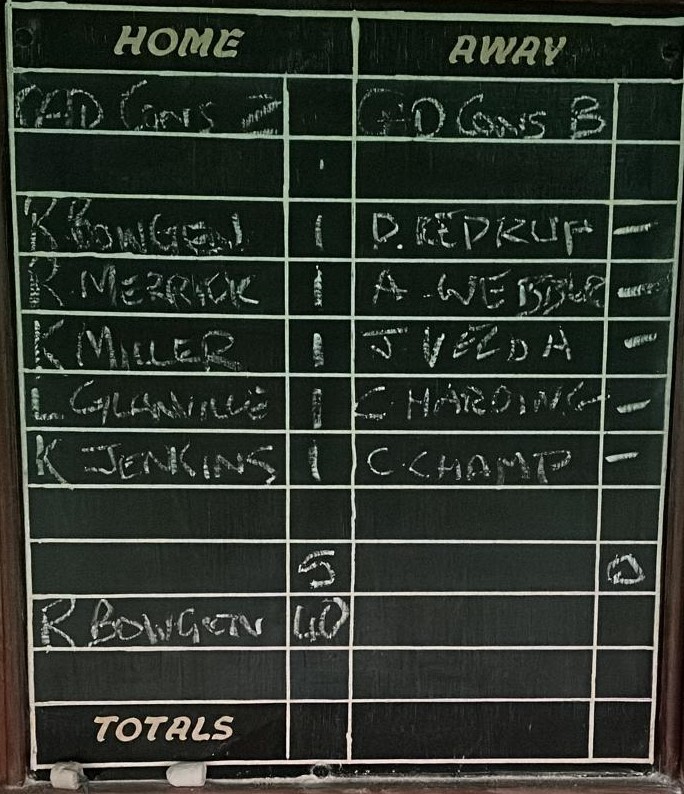 HOME AWAY
CAD CONS Z CAD CONS B
R BOWGEN 1 D. REDRUP -
R. MERRICK 1 A. WEBBER -
K MILLER 1 J VEZDA -
L GLANVILLE 1 C. HARDING -
K JENKINS 1 C. CHAMP -
5 0
R BOWGEN 40
TOTALS